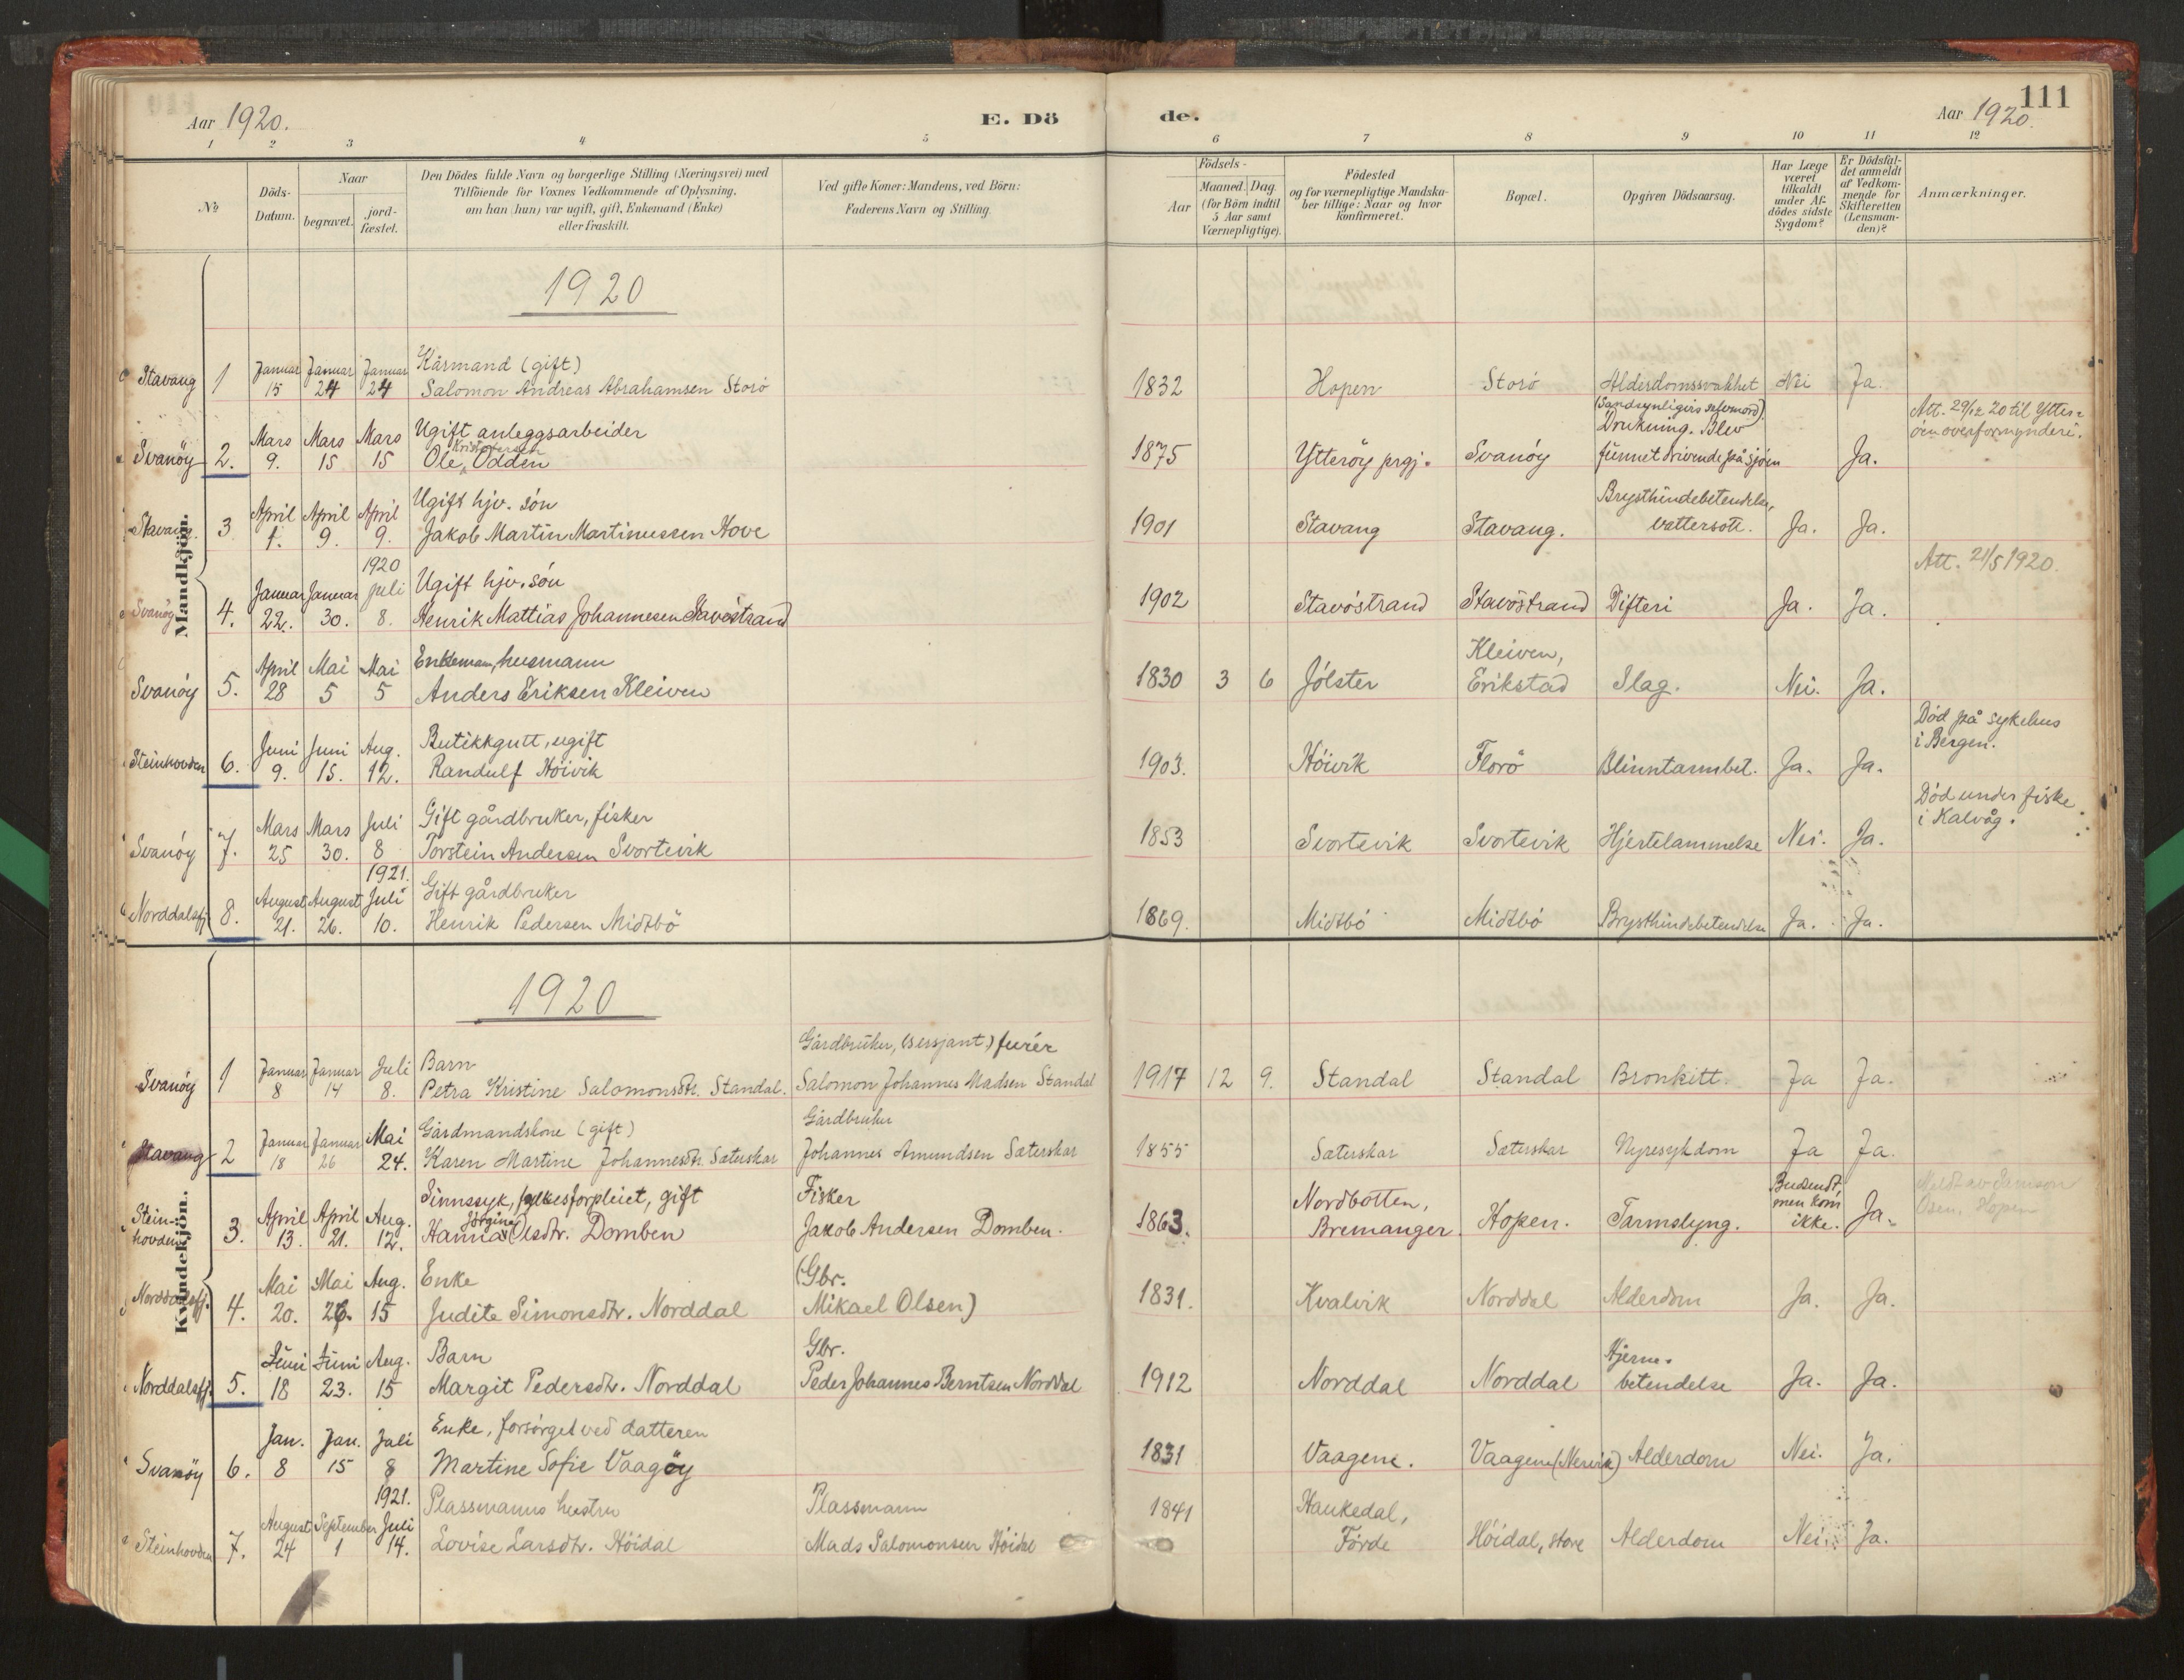 111
Aar 1920.
E. Dö
de.
Aar 1920.
1 2 3 4 5 6 7 8 9 10 11 12
№
Döds-
Datum.
Naar
begravet.
jord-
fæstet.
Den Dödes fulde Navn og borgerlige Stilling (Næringsvei) med
Tilföiende for Voxnes Vedkommende af Oplysning,
om han (hun) var ugift, gift, Enkemand (Enke)
eller fraskilt.
Ved gifte Koner: Mandens, ved Börn:
Faderens Navn og Stilling.
Födsels-
Aar
Maaned. Dag.
(for Börn indtil
5 Aar samt
Værnepligtige).
Födested
og for værnepligtige Mandska-
ber tillige: Naar og hvor
konfirmeret.
Bopæl.
Opgiven Dödsaarsag.
Har Læge
været
tilkaldt
under Af-
dödes sidste
Sygdom?
Er Dödsfal-
det anmeldt
af Vedkom-
mende for
Skifteretten
(Lensman-
den)?
Anmærkninger.
Mandkjön.
1920
Januar Januar Januar Kårmand (gift)
Stavang 1 15 24 24 Salomon Andreas Abrahamsen Storö 1832 Hopen Storö Alderdomssvakhet Nei Ja.
(Sandsynligvis selvmord)
Att. 29/12 20 til Ytter-
öen overformynderi.
Mars Mars Mars Ugift anleggsarbeider Drukning. Blev
Kristofersen
Svanöy 2. 9. 15 15 Ole Odden 1875 Ytteröy prgj. Svanöy funnet drivende på sjöen Ja.
April April April Ugift hjv. sön Brysthindebetendelse,
Stavang. 3 1. 9. 9. Jakob Martin Martinussen Hove 1901 Stavang Stavang. vattersott. Ja. Ja.
1920
Att. 21/5 1920.
Januar Januar Juli Ugift hjv. sön
Svanöy 4. 22. 30. 8. Henrik Mattias Johannesen Stavöstrand 1902 Stavöstrand Stavöstrand Difteri Ja. Ja.
April Mai Mai Enkemann, husmann Kleiven,
Svanöy 5. 28 5 5 Anders Eriksen Kleiven 1830 3 6 Jölster Erikstad Slag. Nei. Ja.
Juni Juni Aug. Butikkgutt, ugift Död på sykehus
i Bergen.
Steinhovden 6. 9. 15. 12. Randulf Höivik 1903. Höivik Florö Blinntarmbet. Ja. Ja.
Mars Mars Juli Gift gårdbruker, fisker Död under fiske
i Kalvåg.
Svanöy 7. 25 30. 8 Torstein Andersen Svortevik 1853 Svortevik Svortevik Hjertelammelse Nei. Ja.
1921.
August August Juli Gift gårdbruker
Norddalsfj. 8. 21. 26. 10. Henrik Pedersen Midtbö 1869. Midtbö Midtbö Brysthindebetendelse Ja. Ja.
Kvindekjön.
1920
Januar Januar Juli Barn Gårdbruker, (sersjant) furér
Svanöy 1 8 14 8. Petra Kristine Salomonsdtr. Standal. Salomon Johannes Madsen Standal 1917 12 9. Standal Standal Bronkitt. Ja Ja.
Januar Januar Mai Gårdmandskone (gift) Gårdbruker
Stavang 2 18 26 24. Karen Martine Johannesdtr. Sæterskar Johannes Amundsen Sæterskar 1855 Sæterskar Sæterskar Nyresykdom Ja Ja.
April April Aug. Sinnssyk, fylkesforpleiet, gift Fisker Nordbotten, Budsendt,
Jörgine
men kom
Meldt av Samson
Osen, Hopen
Stein-
hovden 3. 13. 21. 12. Hanna Olsdtr. Domben Jakob Andersen Domben. 1863. Bremanger. Hopen. Tarmslyng. ikke. Ja.
Mai Mai Aug. Enke (Gbr.
Norddalsfj. 4. 20. 26. 15 Judite Simonsdtr. Norddal Mikael Olsen) 1831. Kvalvik Norddal Alderdom Ja. Ja.
Juni Juni Aug. Barn Gbr. Hjerne-
Norddalsfj. 5. 18 23. 15 Margit Pedersdtr. Norddal Peder Johannes Berntsen Norddal 1912 Norddal Norddal betendelse Ja. Ja.
Jan. Jan. Juli Enke, forsörget ved datteren
Svanöy 6. 8 15 8 Martine Sofie Vaagöy 1831 Vaagene. Vaagene Alderdom Nei. Ja.
1921.
August September Juli Plassmanns hustru Plassmann Haukedal,
Steinhovden 7. 24 1 14. Lovise Larsdtr. Höidal Mads Salomonsen Höidal 1841 Förde Höidal, store Alderdom Nei. Ja.